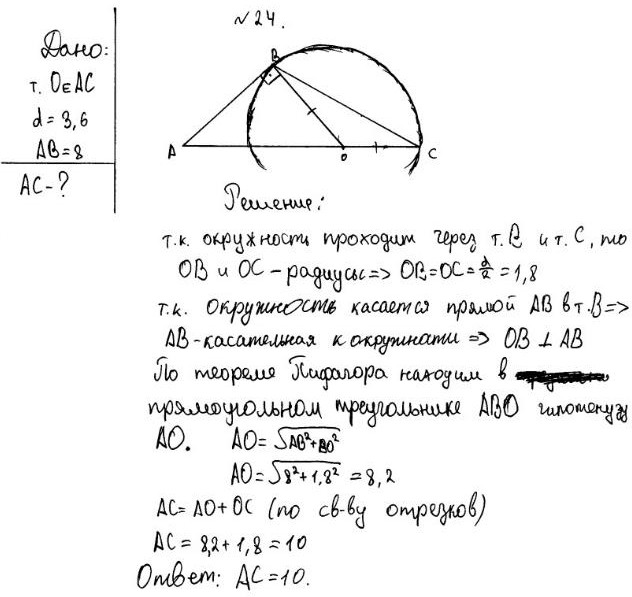 №24.
Дано:
т. O∈AC
d = 3,6
AB = 8
AC - ?
B
A
O
C
Решение:
т.к. окружность проходит через т. B и т. C, то
OB и OC - радиусы => OB = OC = d/2 = 1,8
т.к. окружность касается прямой AB в т. B =>
AB - касательная к окружности => OB ⊥ AB
По теореме Пифагора находим в
прямоугольном треугольнике ABO гипотенузу
AO. AO = √AB²+BO²
AO = √8²+1,8² = 8,2
AC = AO + OC (по св-ву отрезков)
AC = 8,2 + 1,8 = 10
Ответ: AC = 10.